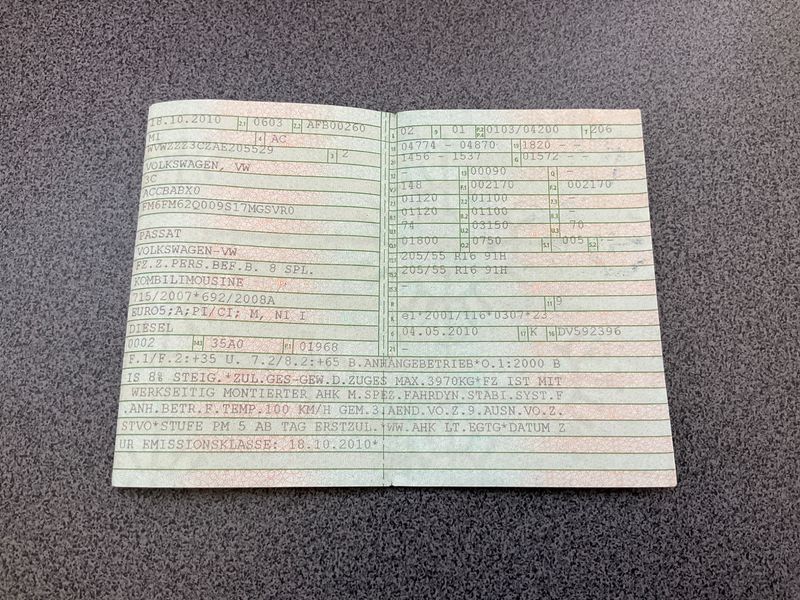 18.10.2010 2.1 0603 2.2 AFB00260
M1 4 AC
WVWZZZ3CZAE205529 3 2
VOLKSWAGEN, VW
3C
ACCBABX0
FM6FM62Q009S17MGSVR0
PASSAT
VOLKSWAGEN-VW
FZ.Z.PERS.BEF.B. 8 SPL.
KOMBILIMOUSINE
715/2007*692/2008A
EURO5;A;PI/CI; M, N1 I
DIESEL
0002 14.1 35A0 P.1 01968
02 9 01 P.2 P.4 0103/04200 T 206
04774 - 04870 19 1820 - -
1456 - 1537 G 01572 - -
- 13 00090 Q -
148 F.1 002170 F.2 002170
01120 01100 -
01120 01100 -
74 U.2 03150 U.3 70
01800 O.2 0750 S.1 005 S.2 -
205/55 R16 91H
205/55 R16 91H
-
- 11 9
e1*2001/116*0307*23
04.05.2010 17 K 16 DV592396
-
F.1/F.2:+35 U. 7.2/8.2:+65 B.ANHÄNGEBETRIEB*O.1:2000 B
IS 8% STEIG.*ZUL.GES-GEW.D.ZUGES MAX.3970KG*FZ IST MIT
WERKSEITIG MONTIERTER AHK M.SPEZ.FAHRDYN.STABI.SYST.F
.ANH.BETR.F.TEMP.100 KM/H GEM.3.AEND.VO.Z.9.AUSN.VO.Z.
STVO*STUFE PM 5 AB TAG ERSTZUL.*WW.AHK LT.EGTG*DATUM Z
UR EMISSIONSKLASSE: 18.10.2010*